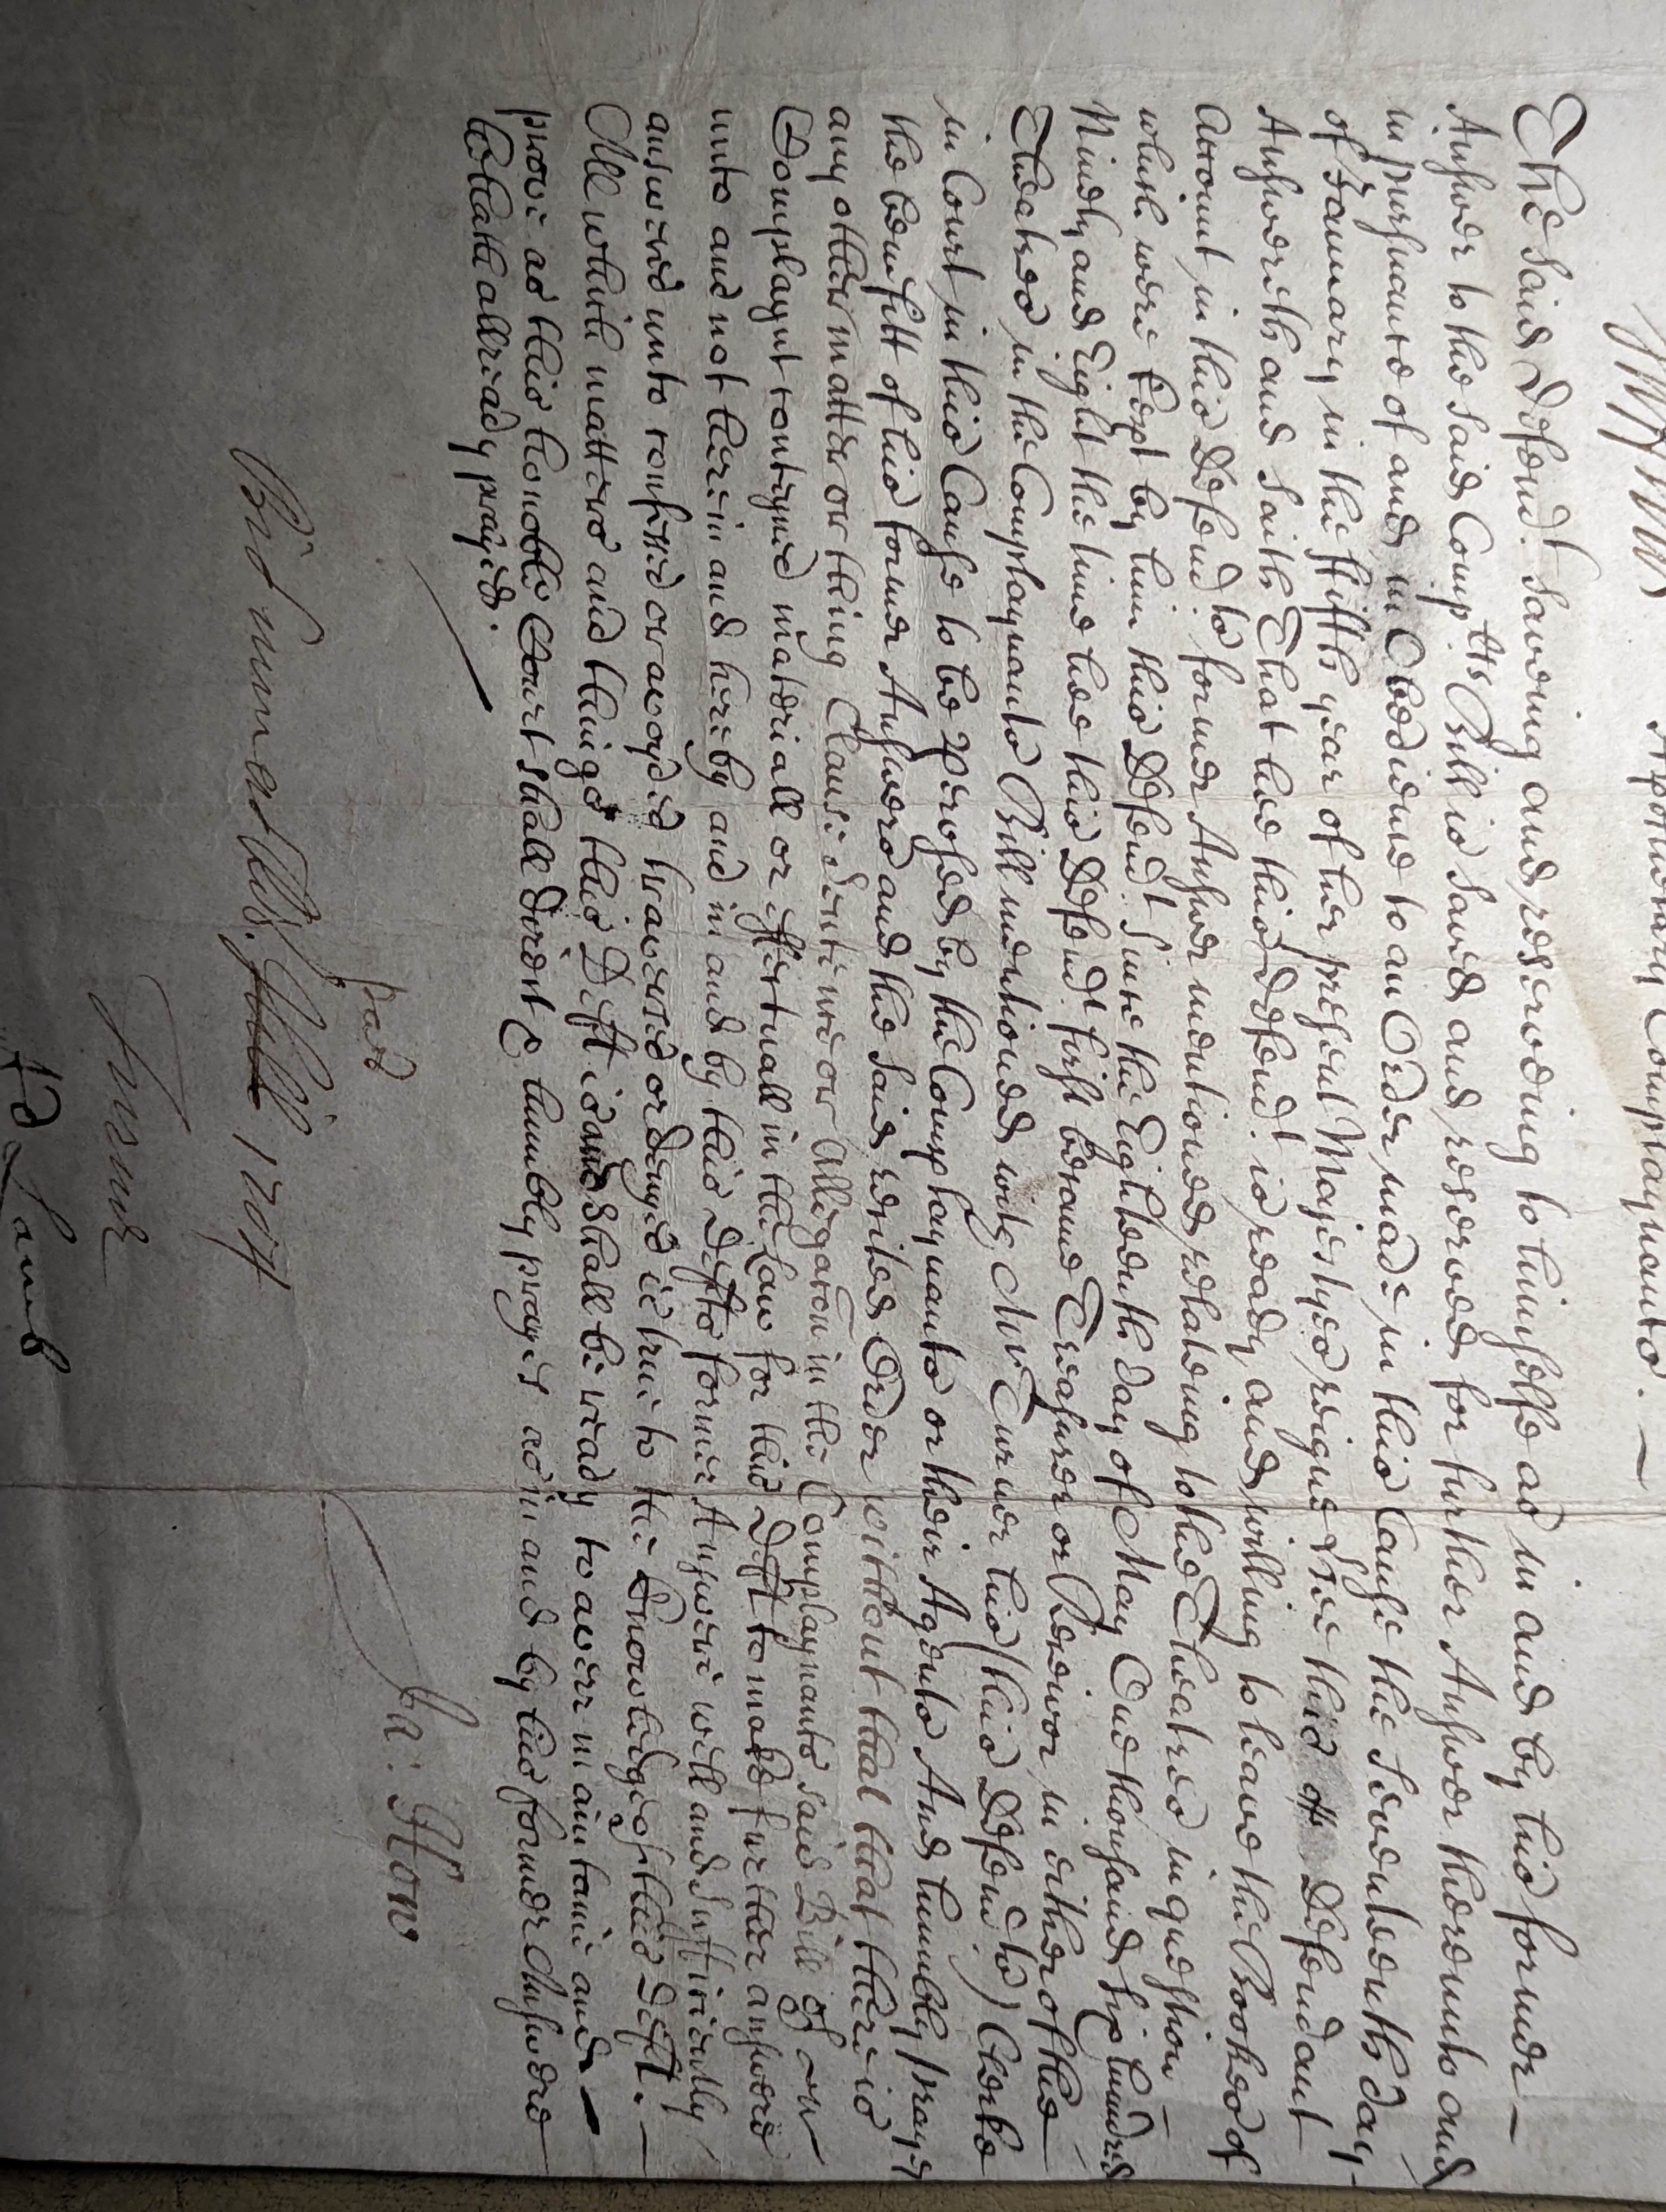 Apothecary Complaynants. —
The said Defend.t saveing and reserveing to himselfe as in and by his former —
Answer to the said Comp.tts Bill is saved and reserved for further Answer thereunto and
in pursuance of and in Obedience to an Order made in this Cause the Seventeenth day
of January in the ffifth year of her present Majestyes reigne this Defendant
Answereth and saith That hee this Defend.t is ready and willing to leave the Bookes of
Account in this Defend.ts former Answer mentioned relateing to the Theatres in question —
which were kept by him this Defend.t Since the Eighteenth day of May One thousand Six hundred
Ninety and Eight the time hee this Defend.t first became Treasurer or Receivor in either of the
Theatres in the Complaynants Bill mentioned with Mr Turner his (this Defend.ts) Clerke
in Court in this Cause to be perused by the Complaynants or their Agents And humbly prayes
the benefitt of his former Answere and the said recited Order without that that there is
any other matter or thing Clause Sentence or Allegacon in the Complaynants said Bill of
Complaynt conteyned materiall or effectuall in the Law for this Deft to make further answere
unto and not herein and hereby and in and by this Defts former Answere well and sufficiently
answered unto confessed or avoyded traversed or denyed is true to the knowledge of this Deft. —
All which matters and things this Deft is and shall be ready to averr maintaine and —
prove as this honoble Court shall direct & humbly prayes as in and by his former Answere
he hath allready prayed.
Jur
Turner